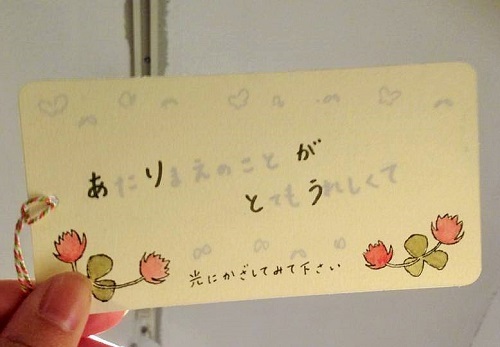 あたりまえのことが
とてもうれしくて
光にかざしてみて下さい